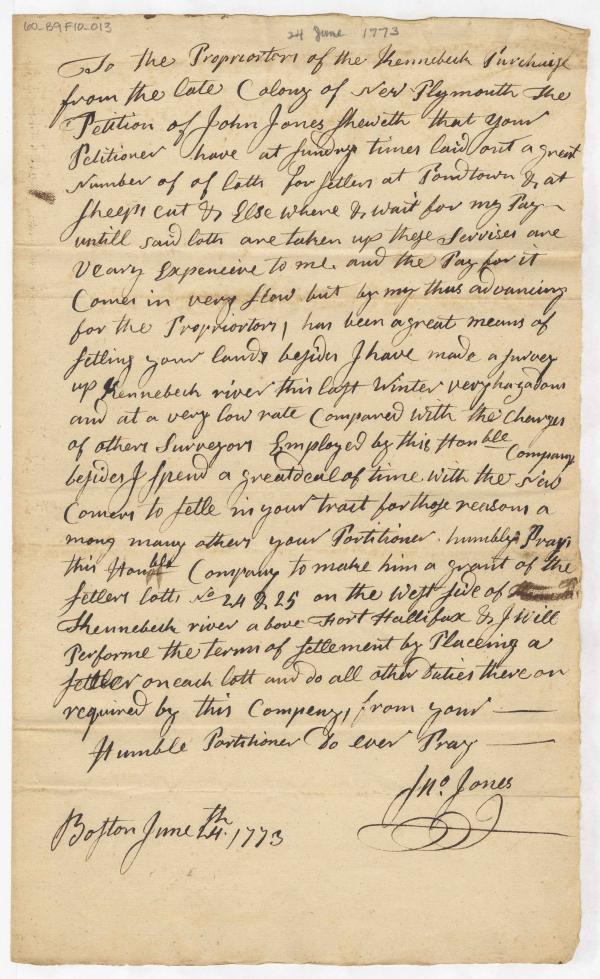 60-B9F10-013
24 June 1773
To the Propriortors of the Kennebeck Purchase
from the late Colony of New Plymouth The
Petition of John Jones Sheweth that your
Petitioner have at sundrys times laid out a great
Number of of lotts for setlers at Pondtown & at
Sheeps cut & Else where & wait for my Pay
untill said lotts are taken up these Servises are
veary Expencive to me. and the Pay for it
Comes in very slow but by my thus advancing
for the Propriortors, has been a great means of
setling your lands besides I have made a survey
up Kennebeck river this last Winter very hazadous
and at a very low rate Compared with the Charges
of others Surveyors Employed by this Honble Company
besides I spend a greatdeal of time with the New
Comers to setle in your tract for those reasons a
mong many others your Portitioner humbly Prays
this Honble Company to make him a grant of the
setlers lotts No 24 & 25 on the West side of
Kennebeck river above Fort Hallifax & I Will
Performe the terms of setlement by Placeing a
setller on each lott and do all other Duties there on
required by this Compeny, from your
Humble Portitioner Do ever Pray
Jno. Jones
Boston June 24th. 1773